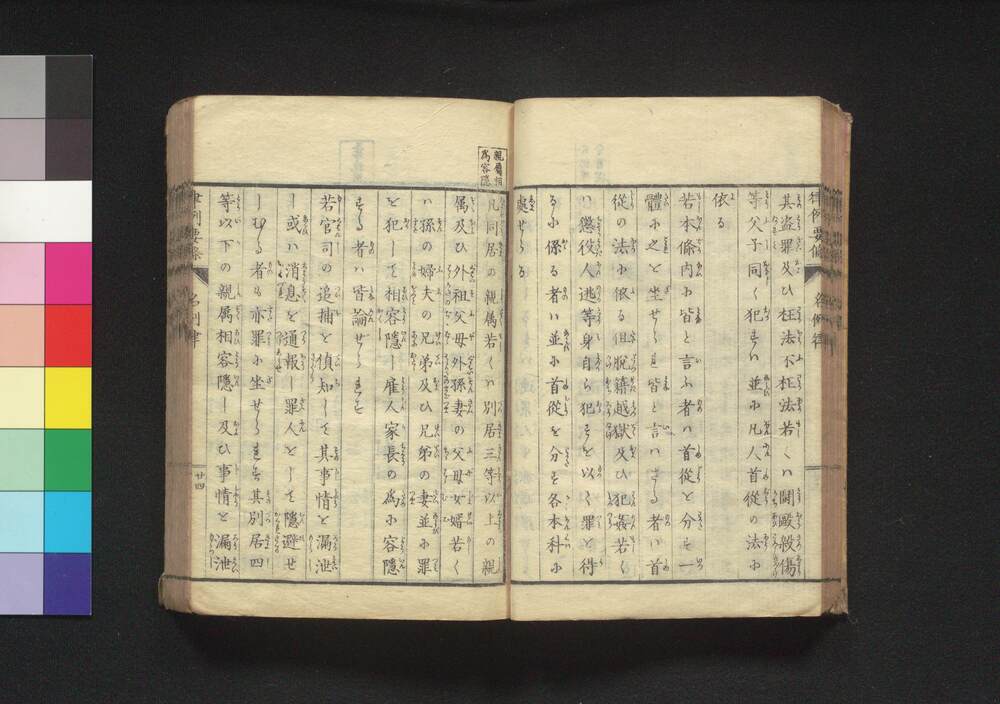 律例要條 名例律
其盗罪及ひ枉法不枉法若くハ鬪毆殺傷
等父子同く犯すハ並に凡人首從の法に
依る
若本條內に皆と言ふ者ハ首從を分す一
體に之を坐せしむ皆と言ハさる者ハ首
從の法に依る但脱籍越獄及ひ犯姦若く
ハ懲役人逃等身自ら犯すを以て罪を得
るに係る者ハ並に首從を分す各本科に
處せらる
親屬相
爲容隱
凡同居の親属若くハ別居三等以上の親
属及ひ外祖父母外孫妻の父母女婿若く
ハ孫の婦夫の兄弟及ひ兄弟の妻並に罪
を犯して相容隱し雇人家長の爲に容隱
する者ハ皆論せらるす
若官司の追捕を偵知して其事情を漏泄
し或ハ消息を通報し罪人をして隱避せ
しむる者も亦罪に坐せらるす其別居四
等以下の親属相容隱し及ひ事情を漏泄
律例要條 名例律 廿四